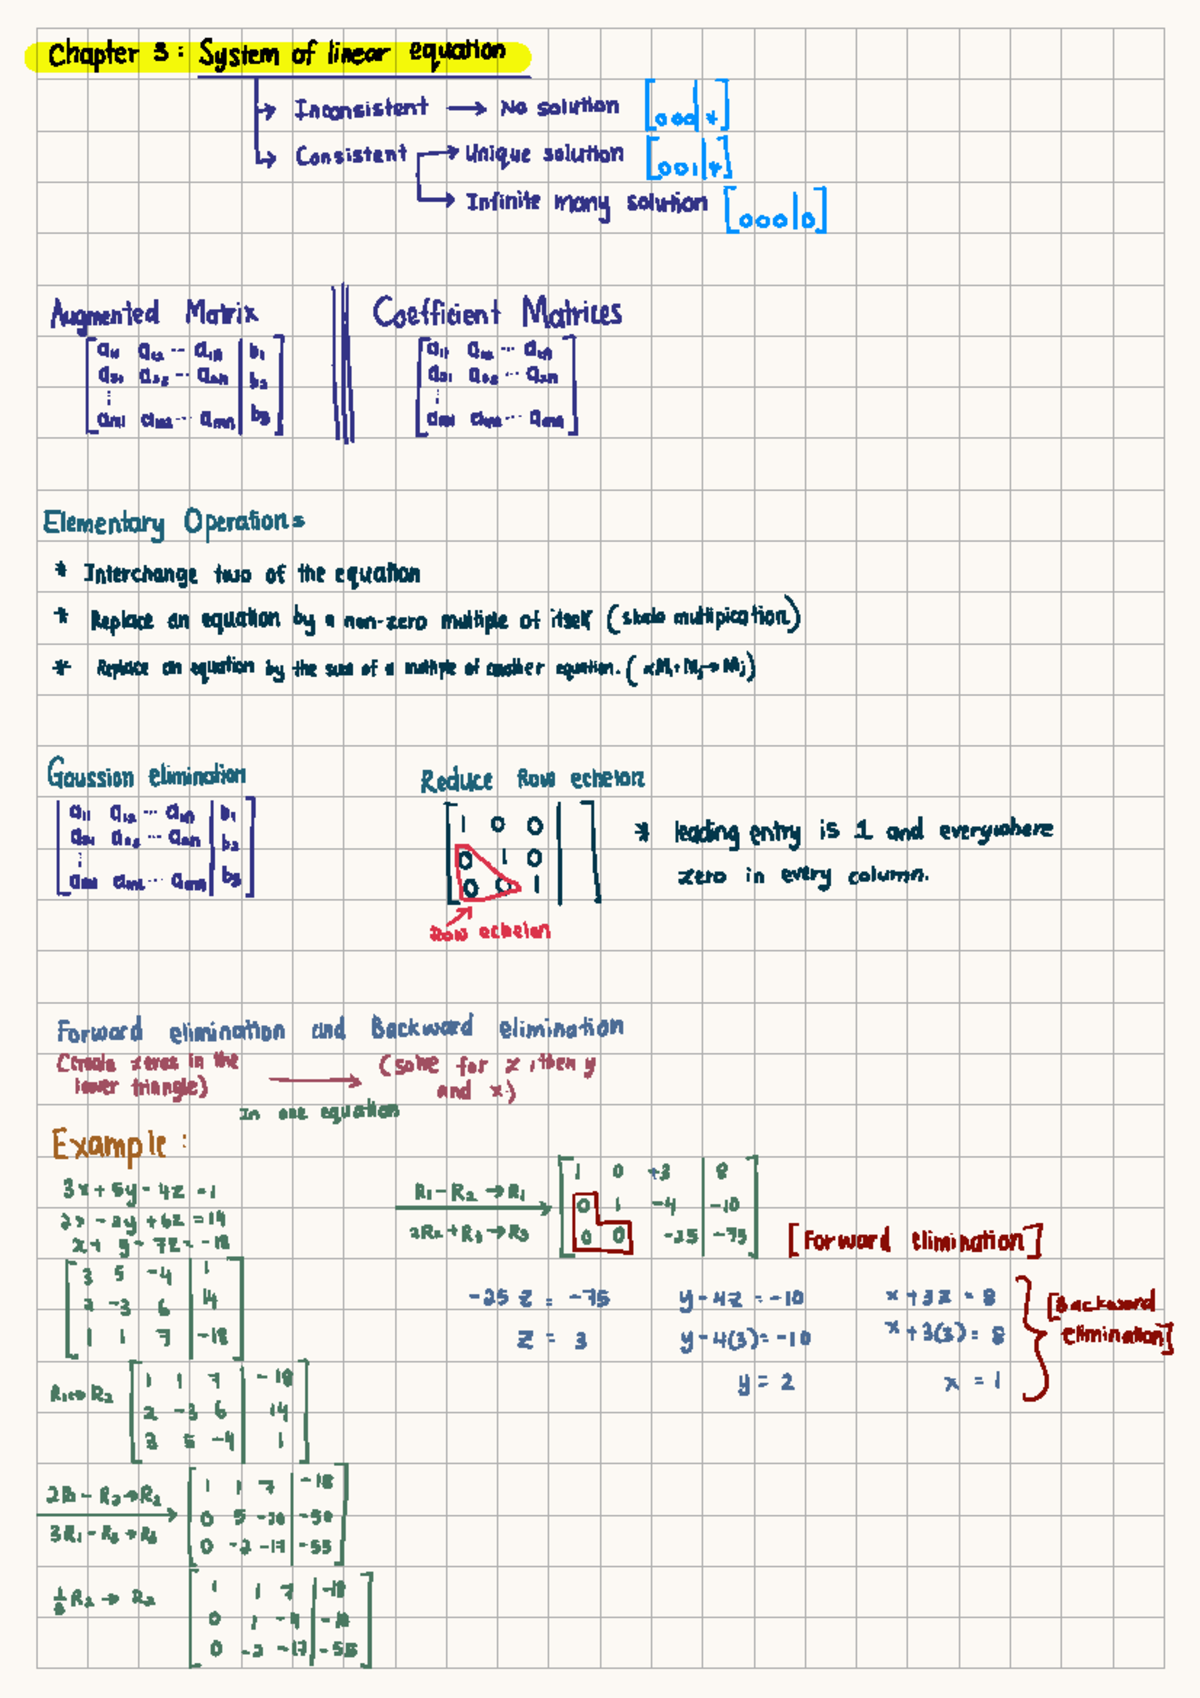 Chapter 3: System of linear equation
Inconsistent → No solution [0 0 0 | *]
Consistent → Unique solution [0 0 1 | *]
→ Infinite many solution [0 0 0 | 0]
Augmented Matrix
a11 a12 ... a1n | b1
a21 a22 ... a2n | b2
⋮
am1 am2 ... amn | b3
Coefficient Matrices
a11 a12 ... a1n
a21 a22 ... a2n
⋮
am1 am2 ... amn
Elementary Operations
* Interchange two of the equation
* Replace an equation by a non-zero multiple of itself (skalo multipication)
* Replace an equation by the sum of a multiple of another equation. (∝Mi + Mj → Mj)
Gaussion elimination
a11 a12 ... a1n | b1
a21 a22 ... a2n | b2
⋮
am1 am2 ... amn | b3
Reduce Row echelon
1 0 0
0 1 0
0 0 1
Row echelon
* leading entry is 1 and everywhere
zero in every column.
Forward elimination and Backward elimination
(Create zeros in the
lower triangle)
→
(solve for z, then y
and x.)
In one equation
Example:
3x + 5y - 4z = 1
2x - 3y + 6z = 14
x + y - 7z = -18
3 5 -4 | 1
2 -3 6 | 14
1 1 7 | -18
R1↔R2
1 1 7 | -18
2 -3 6 | 14
3 5 -4 | 1
2R1 - R2 → R2
3R1 - R3 → R3
1 1 7 | -18
0 5 -20 | -50
0 -2 -17 | -55
1/5 R2 → R2
1 1 7 | -18
0 1 -4 | -10
0 -2 -17 | -55
R1 - R2 → R1
2R2 + R3 → R3
1 0 +3 | 8
0 1 -4 | -10
0 0 -25 | -75
[Forward elimination]
-25 z = -75
z = 3
y - 4z = -10
y - 4(3) = -10
y = 2
x + 3z = 8
x + 3(3) = 8
x = 1
[Backward
elimination]